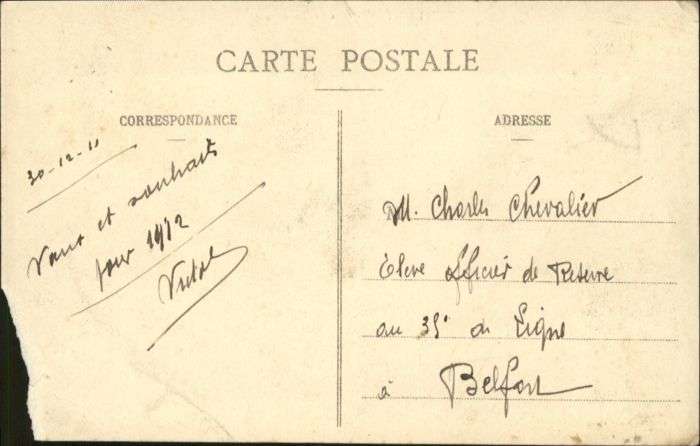 CARTE POSTALE
CORRESPONDANCE
30-12-11
Vœux et souhaits
pour 1912
ADRESSE
M. Charles Chevalier
Elève Officier de Réserve
au 35e de Ligne
à Belfort